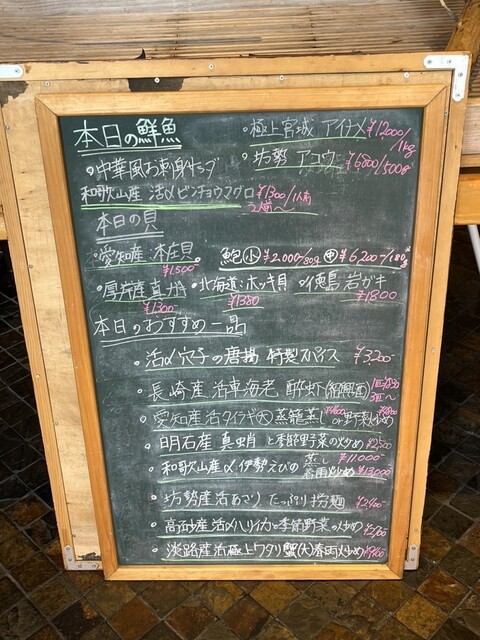 本日の鮮魚
・極上宮城 アイナメ ¥12000/1kg
・坊勢 アコウ ¥6800/500g
・中華風お刺身サラダ
和歌山産 活〆ビンチョウマグロ ¥1300/1人前
2人前〜
本日の貝
・愛知産:本庄貝。
¥1,500
鮑 小 ¥2,000/80g 中 ¥6,200/180g
・厚岸産真牡蛎
¥1300
・北海道:ホッキ貝
¥1380
・徳島岩ガキ
¥1800
本日のおすすめ一品
・活〆穴子の唐揚 特製スパイス ¥3,200-
・長崎産 活車海老 酔蝦(紹興酒)
3匹〜
・愛知産活タイラギ(大)蒸籠蒸し or 野菜炒め
・明石産 真蛸と季節野菜の炒め ¥2,500
・和歌山産〆伊勢えび の 蒸し ¥11,000-
春雨炒め ¥13,000
・坊勢産活あさり たっぷり拌麺 ¥2400-
・高砂産活〆ハリイカと季節野菜の炒め ¥2,700
・淡路産活極上ワタリ蟹(大)春雨炒め